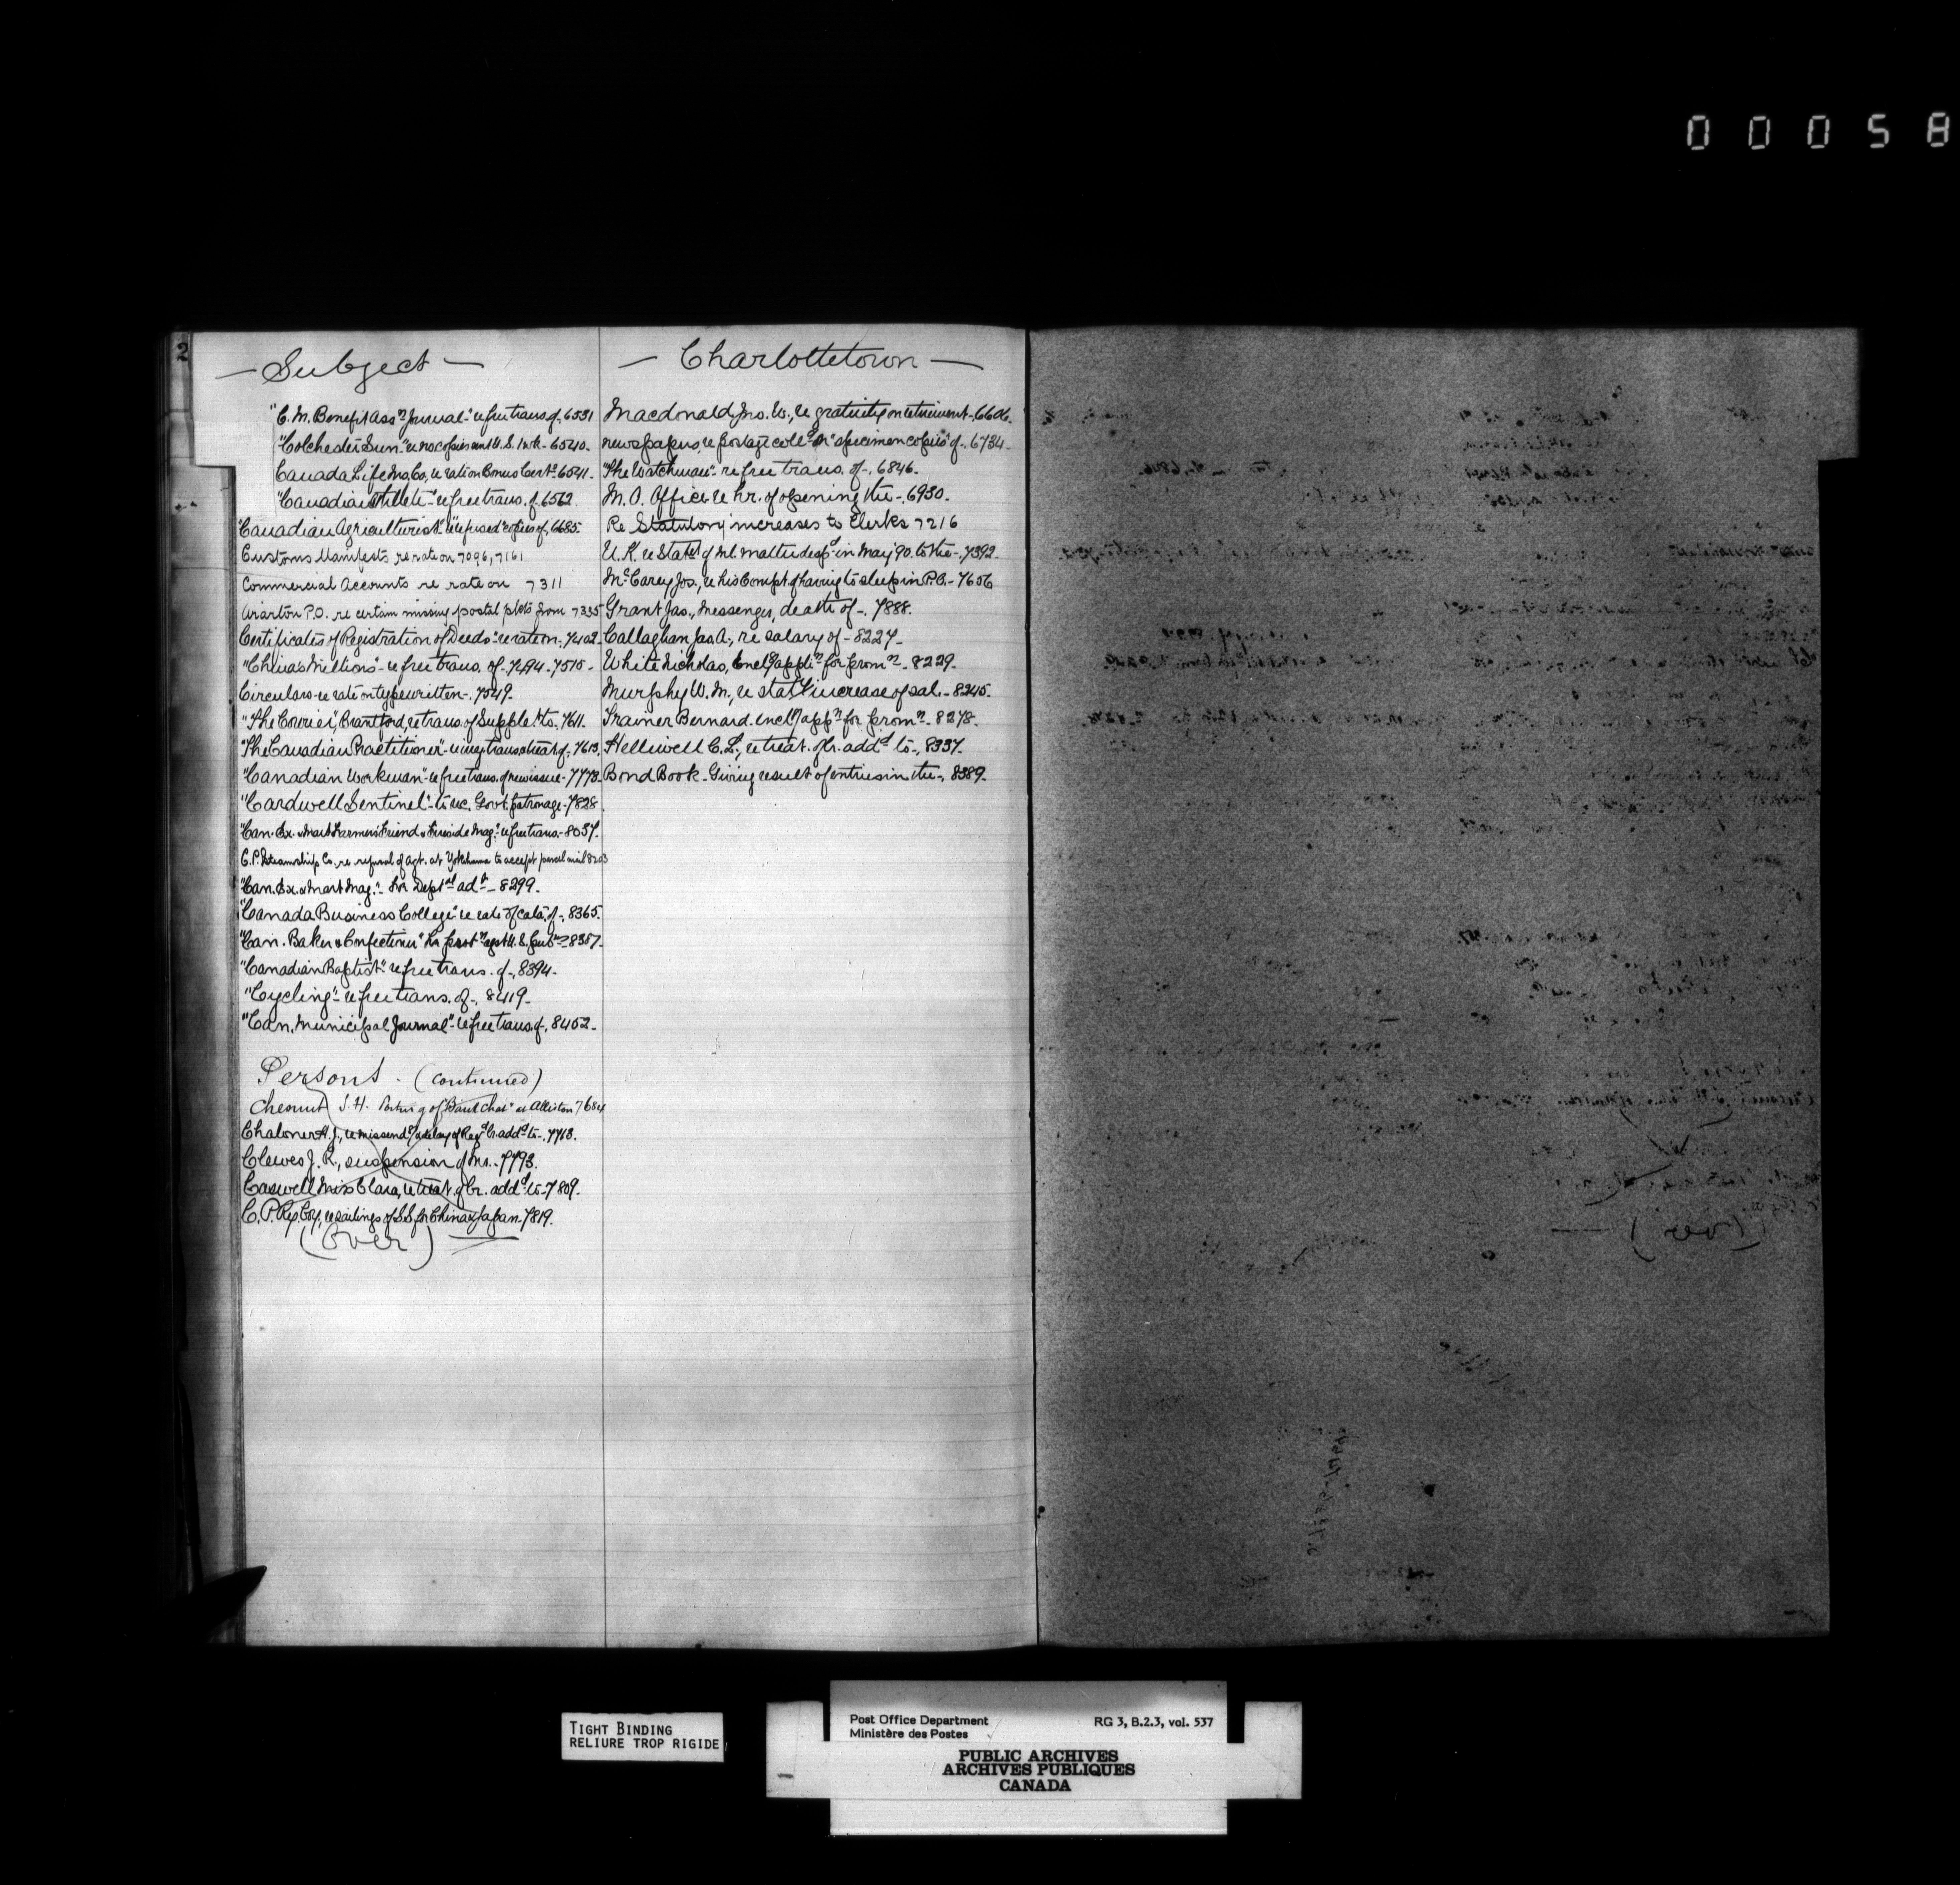 00058
2
— Subject —
"C. M. Benefit Assn Journal" - re free trans. of, 6531
"Colchester Sun" - re no. copies sent U.S. 1 wk - 6540 -
Canada Life Ins. Co, re rate on Bonus Certs - 6541 -
"Canadian Athlete" - re free trans. of, 6562.
"Canadian Agriculturist" - re refused copies of, 6685.
Customs Manifests re rate on 7096, 7161
Commercial Accounts re rate on 7311
P.O. re certain missing postal pkts from 7335
Certificates of Registration of Deeds - re rate on, 7402 -
"China's Millions" - re free trans. of - 7494 - 7515 -
Circulars - re rate on typewritten -, 7549 -
"The Courier", Brantford, re trans. of Supplets to, 7611 -
"The Canadian Practitioner" - of -, 7613.
"Canadian Workman" - re free trans. of new issue - 7778 -
"Cardwell Sentinel" - to rec. Govt. patronage - 7828.
"Can. Ex. & Mart Farmers' Friend & Fireside Mag." re free trans. - 8037 -
C. P. Steamship Co. re refusal of agt. at Yokohama to accept parcel mail 8203
"Can. Ex. & Mart Mag." - for Deptal advt - 8299 -
"Canada Business College" re rate of cata. of -, 8365.
"Can. Baker & Confectioner" for agst U.S. - 8387 -
"Canadian Baptist" re free trans. of -, 8394 -
"Cycling" - re free trans. of -, 8419 -
"Can. Municipal Journal" - re free trans. of -, 8452 -
Persons. (continued)
Chesnut S. H. re Alliston 7684
Chaloner H. J., re missendg & delay of Regd lr. addd to -, 7763.
Clewes J. R., suspension of Mr. - 7793.
Caswell Miss Clara, re treat. of lr. addd to - 7809 -
C. P. Ry Coy, re sailings of S.S. for China & Japan - 7819.
(Over)
— Charlottetown —
Macdonald, Jno. W., re gratuity on retirement -, 6606.
newspapers, re postage colld on "specimen copies" of -, 6734 -
"The Watchman" - re free trans. of -, 6846 -
M. O. Office re hr. of opening the -, 6930 -
Re Statutory increases to Clerks 7216
U. K. re Statet of ml. matter despd in May '90. to the -, 7392 -
McCarey Jos., re his Compt. of having to sleep in P.O. - 7656
Grant Jas., Messenger, death of -. 7888.
Callaghan Jas A., re salary of - 8227 -
White Nicholas, enclg applin for promn - 8229 -
Murphy W. M., re staty increase of sal. - 8245 -
Trainer Bernard. enclg appn for promn - 8278 -
Helliwell C. L., re treat. of lr. addd to -, 8337 -
Bond Book - Giving result of entries in the -, 8389 -
TIGHT BINDING
RELIURE TROP RIGIDE
Post Office Department RG 3, B.2.3, vol. 537
Ministère des Postes
PUBLIC ARCHIVES
ARCHIVES PUBLIQUES
CANADA